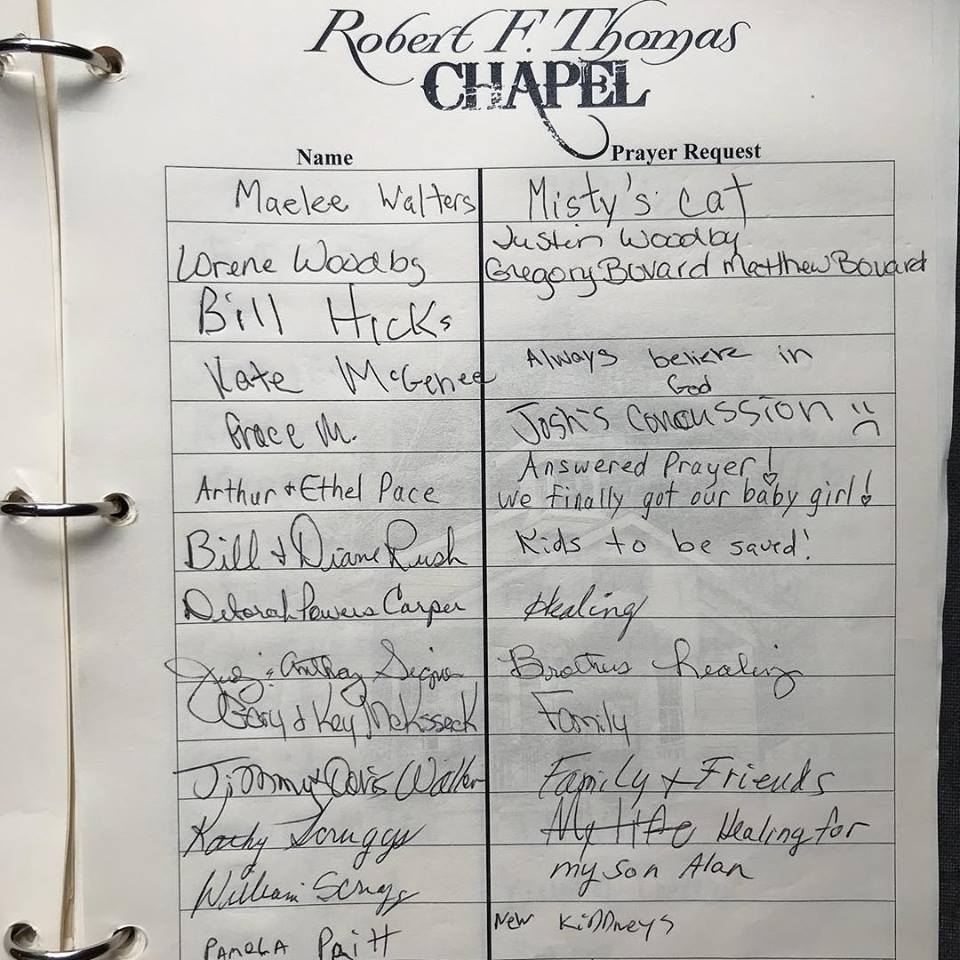 Robert F. Thomas
CHAPEL
Name Prayer Request
Maelee Walters Misty's cat
Justin Woodby
Lorene Woodby Gregory Bovard Matthew Bovard
Bill Hicks
Kate McGehee Always believe in
God
Grace M. Josh's Concussion
Answered Prayer!
Arthur & Ethel Pace We finally got our baby girl!
Bill & Diane Rush Kids to be saved!
Deborah Powers Carper Healing
Anthony Brothers healing
Gary & Kay McKisseck Family
Jimmy & Doris Walker Family & Friends
Kathy Scruggs My life Healing for
my son Alan
William Scruggs
New Kiddneys
PAMELA Pritt